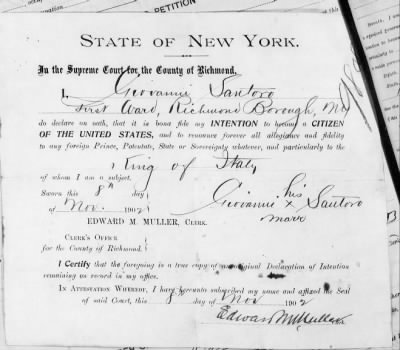 PETITION
STATE OF NEW YORK.
In the Supreme Court for, the County of Richmond.
I, Giovanni Santoro
First Ward, Richmond Borough, NY
do declare on oath, that it is bona fide my INTENTION to become a CITIZEN
OF THE UNITED STATES, and to renounce forever all allegiance and fidelity
to any foreign Prince, Potentate, State or Sovereignty whatever, and particularly to the
King of Italy
of whom I am a subject.
Sworn this 8th day
of Nov. 1902
his
Giovanni x Santoro
mark
EDWARD M. MULLER, CLERK.
CLERK'S OFFICE
for the County of Richmond.
I Certify that the foregoing is a true copy of original Declaration of Intention
remaining of record in my office.
IN ATTESTATION WHEREOF, I have hereunto subscribed my name and affixed the Seal
of said Court, this 8th day of Nov 1902
Edward M. Muller